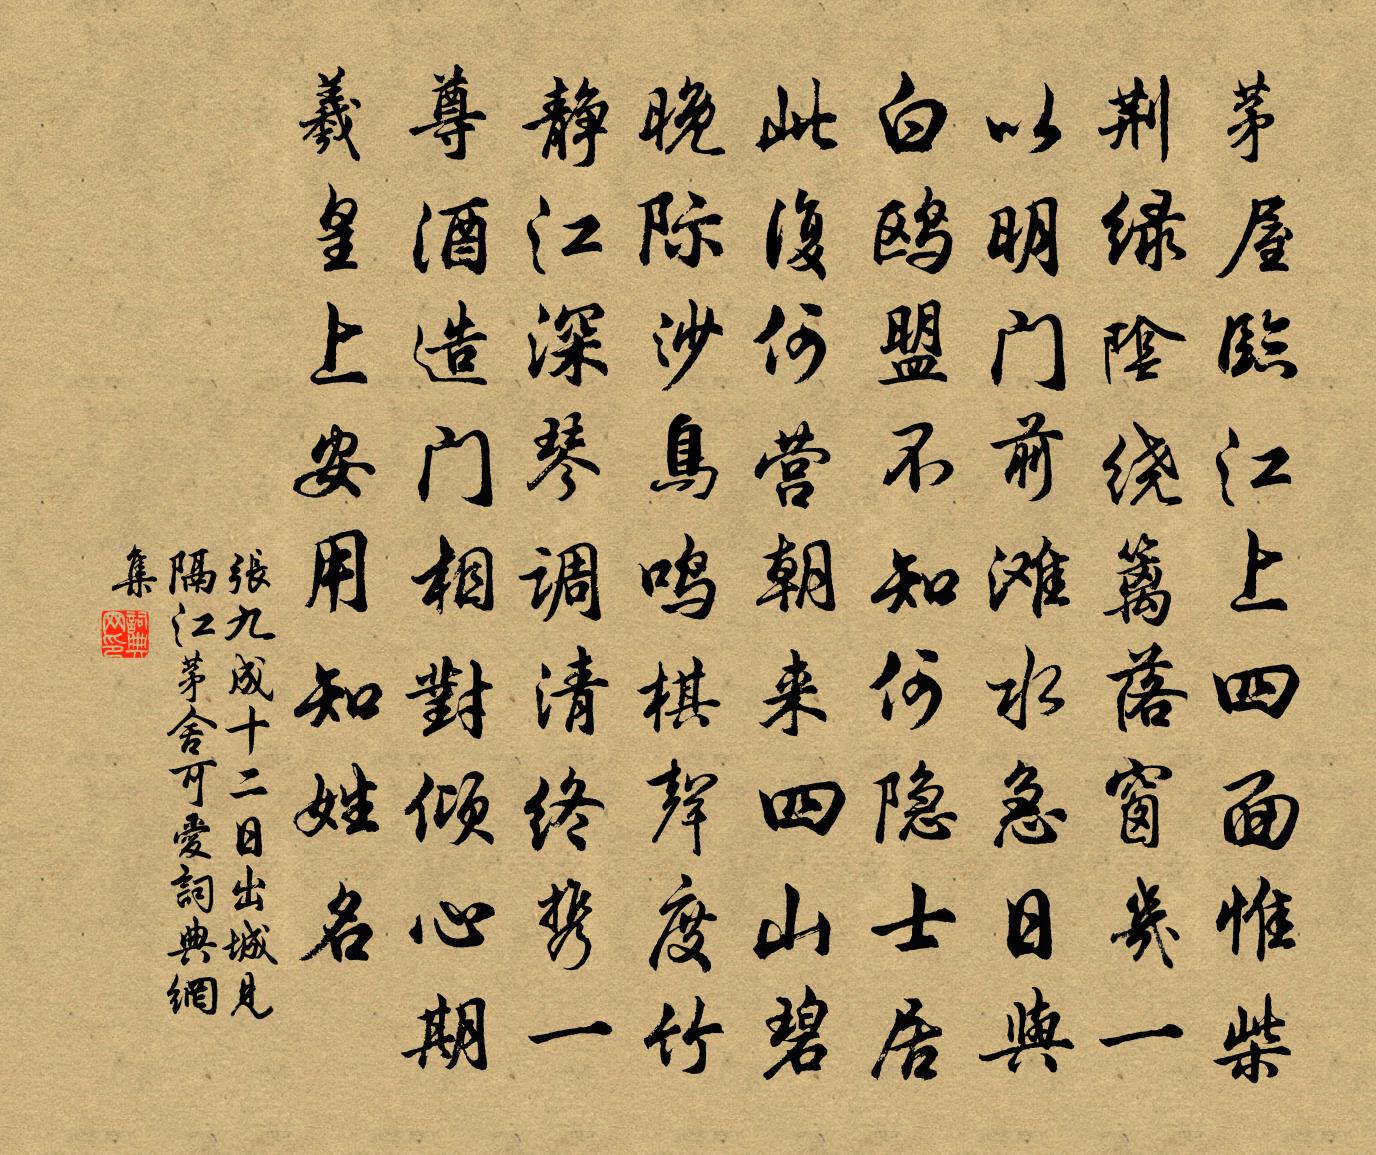 茅屋臨江上四面惟柴
荆緑陰绕篱落窗幾一
以明门前滩水急日與
白鸥盟不知何隐士居
此復何营朝来四山碧
晚际沙鳥鸣棋聲度竹
静江深琴调清终携一
尊酒造门相對倾心期
羲皇上安用知姓名
張九成十二日出城見
隔江茅舍可愛詞典網
集
詞典網印